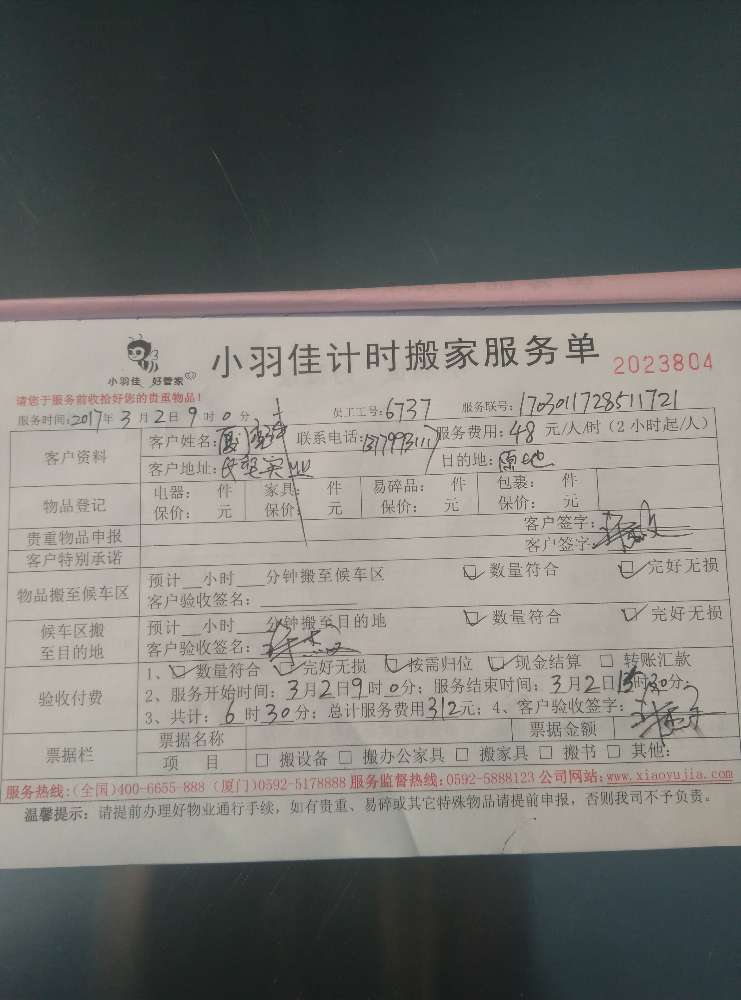 小羽佳 好管家
小羽佳计时搬家服务单 2023804
请您于服务前收拾好您的贵重物品!
服务时间:2017年3月2日9时0分 员工工号:6737 服务联号:1703011728511721
客户资料 客户姓名: 联系电话: 服务费用:48元/人/时(2小时起/人)
客户地址: 目的地:原地
物品登记 电器: 件 家具: 件 易碎品: 件 包裹: 件
保价: 元 保价: 元 保价: 元 保价: 元
贵重物品申报 客户签字:
客户特别承诺 客户签字:
物品搬至候车区 预计__小时__分钟搬至候车区 ☑数量符合 ☑完好无损
客户验收签名:
候车区搬至目的地 预计__小时__分钟搬至目的地 ☑数量符合 ☑完好无损
客户验收签名:
验收付费 1、☑数量符合 ☑完好无损 ☑按需归位 ☑现金结算 □转账汇款
2、服务开始时间:3月2日9时0分;服务结束时间:3月2日15时30分;
3、共计:6时30分;总计服务费用312元;4、客户验收签字:
票据栏 票据名称 票据金额
项 目 □搬设备 □搬办公家具 □搬家具 □搬书 □其他:
服务热线:(全国)400-6655-888 (厦门)0592-5178888 服务监督热线:0592-5888123 公司网站:www.xiaoyujia.com
温馨提示:请提前办理好物业通行手续,如有贵重、易碎或其它特殊物品请提前申报,否则我司不予负责。